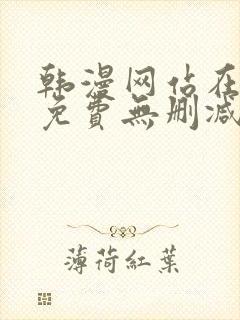 韩漫网站在
免費無删减
薄荷紅葉